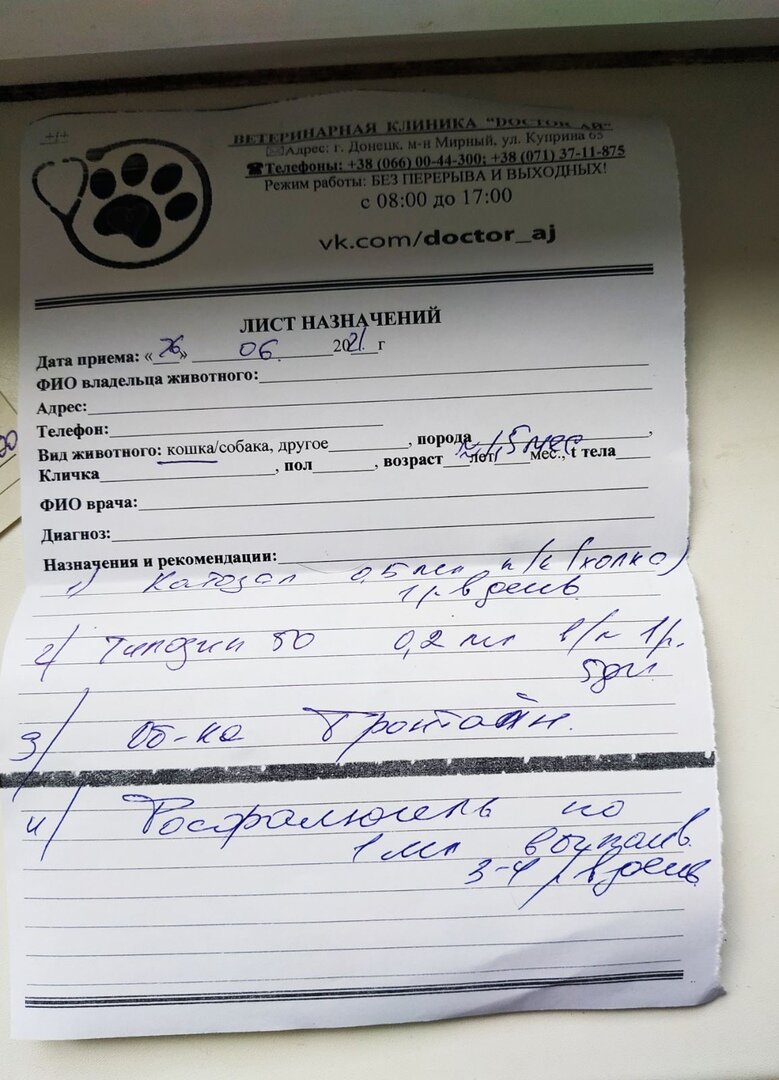 ВЕТЕРИНАРНАЯ КЛИНИКА "DOCTOR АЙ"
Адрес: г. Донецк, м-н Мирный, ул. Куприна 65
Телефоны: +38 (066) 00-44-300; +38 (071) 37-11-875
Режим работы: БЕЗ ПЕРЕРЫВА И ВЫХОДНЫХ!
с 08:00 до 17:00
vk.com/doctor_aj
ЛИСТ НАЗНАЧЕНИЙ
Дата приема: «26» 06. 2021 г
ФИО владельца животного:
Адрес:
Телефон:
Вид животного: кошка/собака, другое , порода ,
Кличка , пол , возраст лет/ мес., t тела
≈ 1,5 мес
ФИО врача:
Диагноз:
Назначения и рекомендации:
1) Катозал 0,5 мл п/к (холка)
1 р. в день
2) 50 0,2 мл в/м 1/р.
5 дн
3) Об-ка
4) Фосфалюгель по
1 мл выпаив.
3-4 р. в день